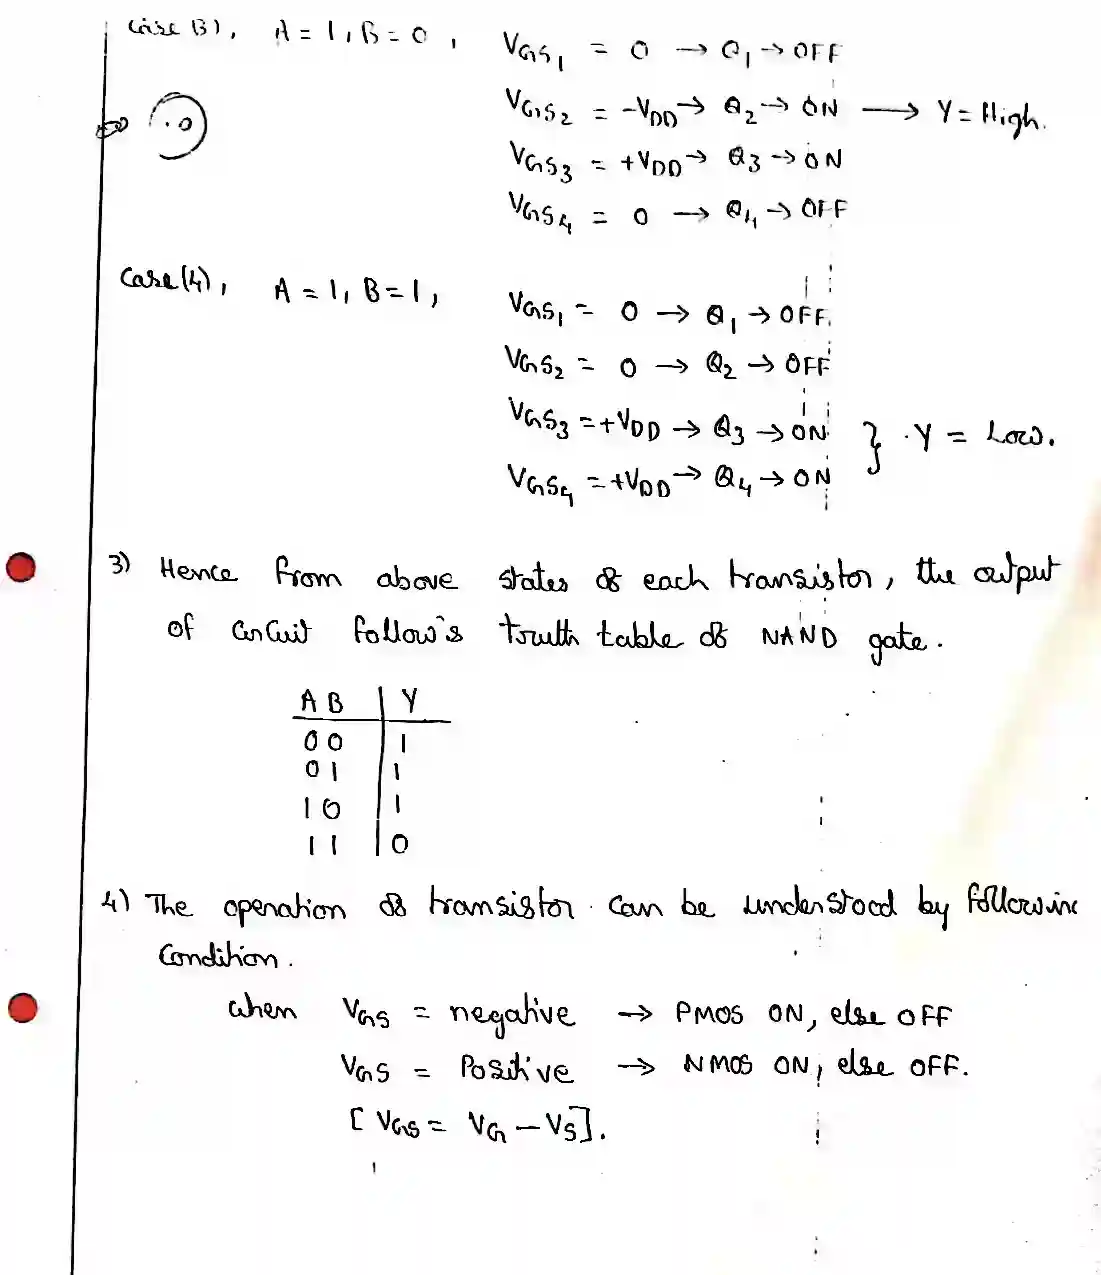 Case (3), A = 1, B = 0, VGS1 = 0 → Q1 → OFF
VGS2 = -VDD → Q2 → ON → Y = High.
VGS3 = +VDD → Q3 → ON
VGS4 = 0 → Q4 → OFF
Case (4), A = 1, B = 1, VGS1 = 0 → Q1 → OFF.
VGS2 = 0 → Q2 → OFF
VGS3 = +VDD → Q3 → ON
VGS4 = +VDD → Q4 → ON } . Y = Low.
3) Hence from above states of each transistor, the output
of circuit follow's truth table of NAND gate.
A B | Y
0 0 | 1
0 1 | 1
1 0 | 1
1 1 | 0
4) The operation of transistor can be understood by followin
Condition.
when VGS = negative → PMOS ON, else OFF
VGS = Positive → NMOS ON, else OFF.
[VGS = VG - VS].